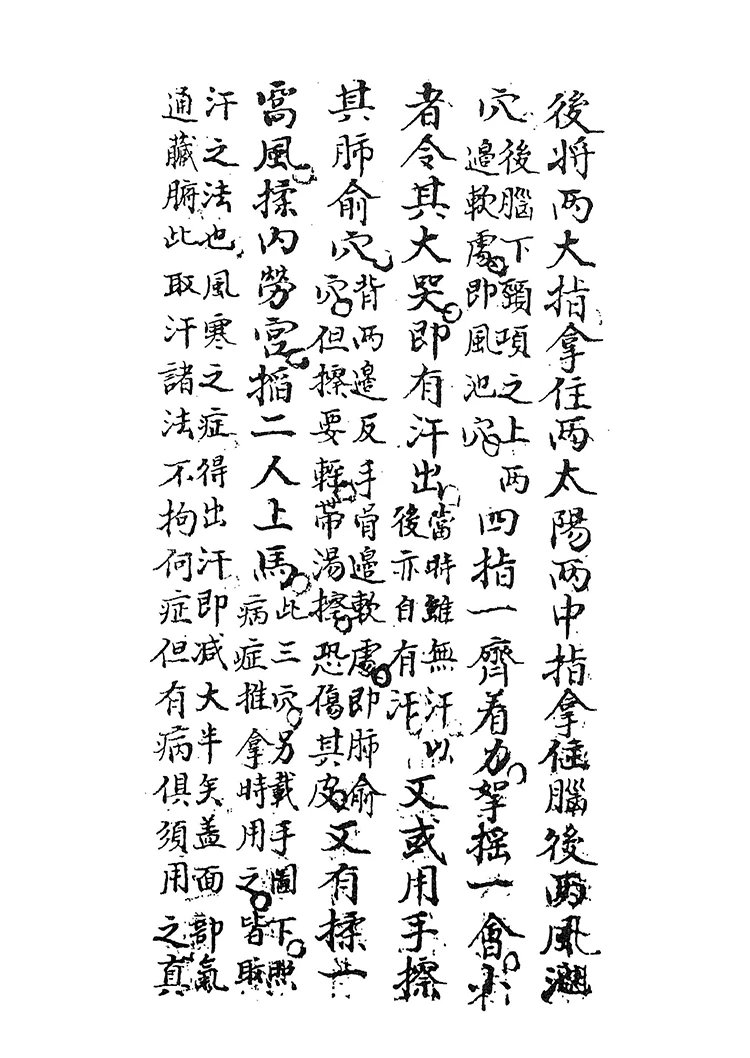 後將两大指拿住两太陽两中指拿住腦後两風池
穴
後腦下頸項之上两
邊軟處即風池穴
四指一齊着力拏搖一會小
者令其大哭即有汗出
當時雖無汗以
後亦自有汗
又或用手擦
其肺俞穴
背两邊反手骨邊軟處即肺俞
穴但擦要輕蒂湯擦恐傷其皮
又有揉一
窩風揉内勞宮掐二人上馬
此三穴另載手圖下照
病症推拿時用之皆取
汗之法也風寒之症得出汗即减大半矣盖面部氣
通臟腑此取汗諸法不拘何症但有病俱須用之真